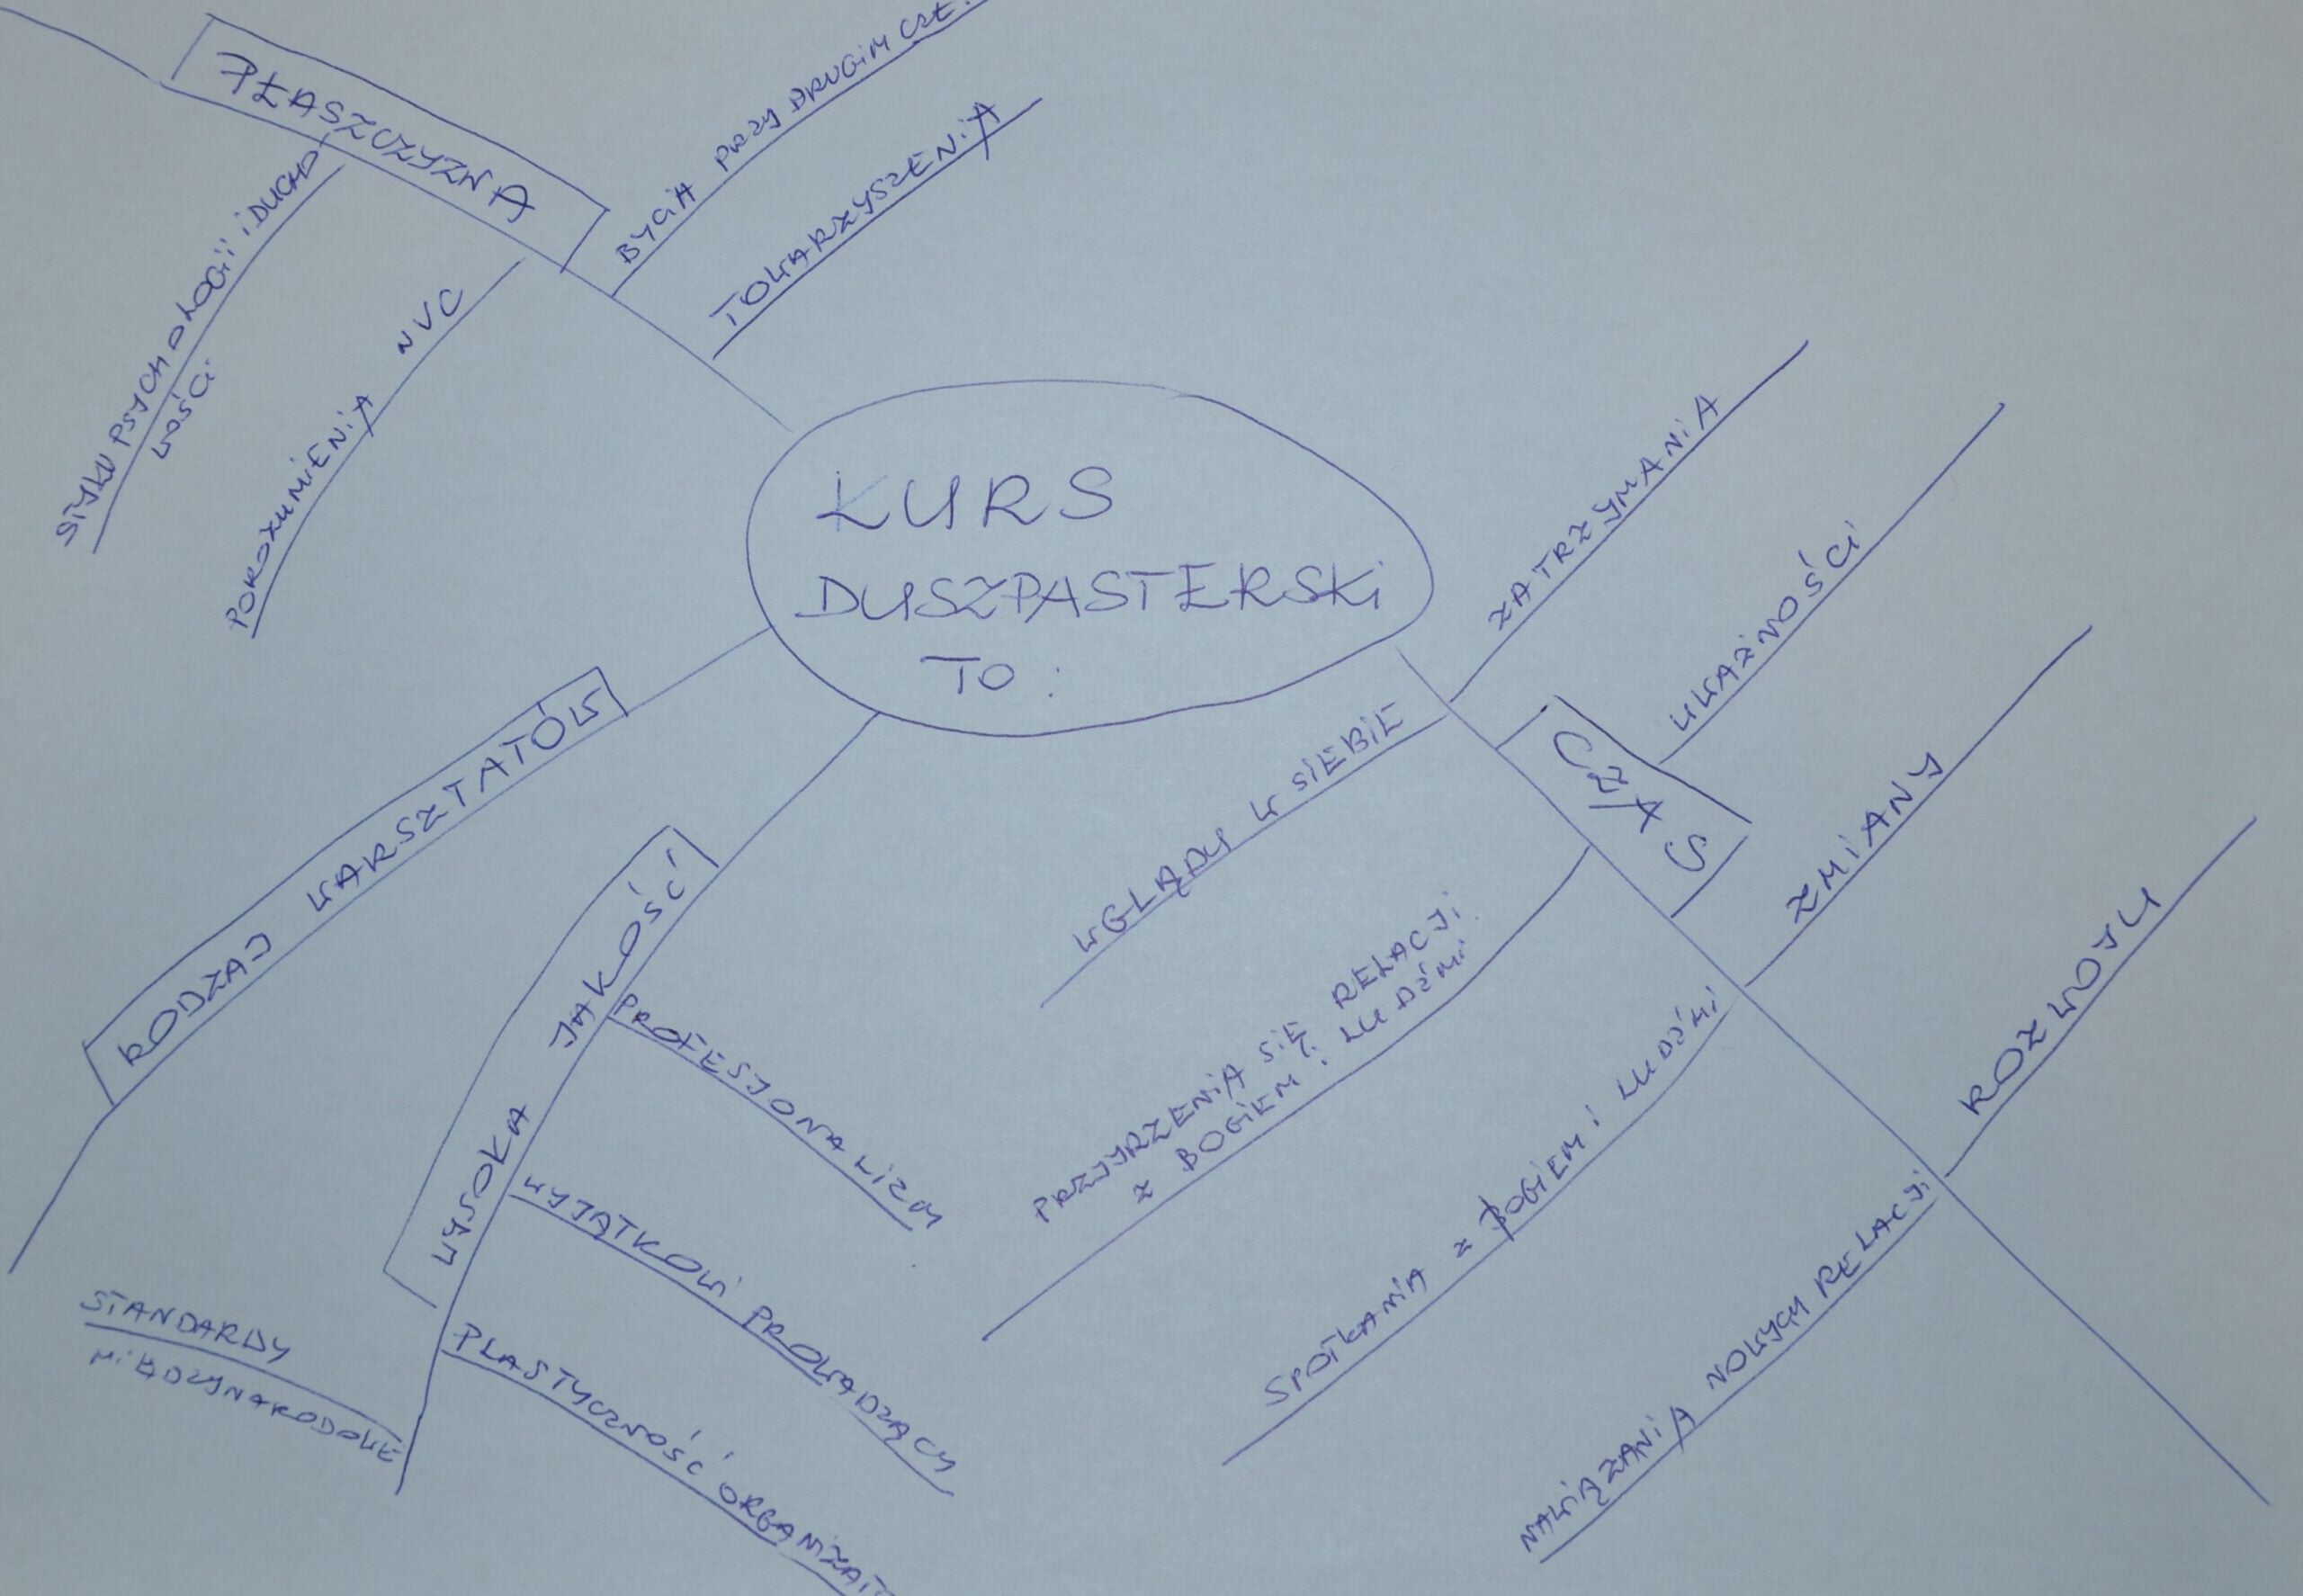 KURS
DUSZPASTERSKI
TO:
PŁASZCZYZNA
BYCIA PRZY DRUGIM CZŁ.
TOWARZYSZENIA
STYKU PSYCHOLOGII i DUCHO
WOŚCI
POROZUMIENIA NVC
RODZAJ WARSZTATÓW
WYSOKA JAKOŚĆ
PROFESJONALIZM
WYJĄTKOWI PROWADZĄCY
PLASTYCZNOŚĆ ORGANIZAT
STANDARDY
MIĘDZYNARODOWE
CZAS
ZATRZYMANIA
UWAŻNOŚCI
ZMIANY
ROZWOJU
WGLĄDU W SIEBIE
PRZYJRZENIA SIĘ RELACJI
Z BOGIEM i LUDŹMI
SPOTKANIA Z BOGIEM i LUDŹMI
NAWIĄZANIA NOWYCH RELACJI